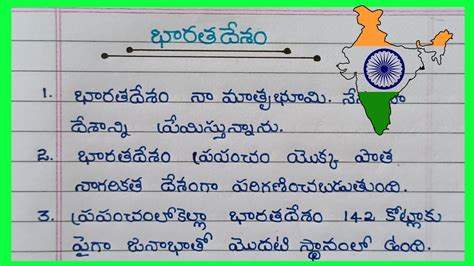 భారతదేశం
1. భారతదేశం నా మాతృభూమి.
దేశాన్ని ప్రేమిస్తున్నాను.
2. భారతదేశం ప్రపంచం యొక్క పాత
నాగరికత దేశంగా పరిగణించబడుతుంది.
3. ప్రపంచంలోకెల్లా భారతదేశం 142 కోట్లకు
పైగా జనాభాతో మొదటి స్థానంలో ఉంది.